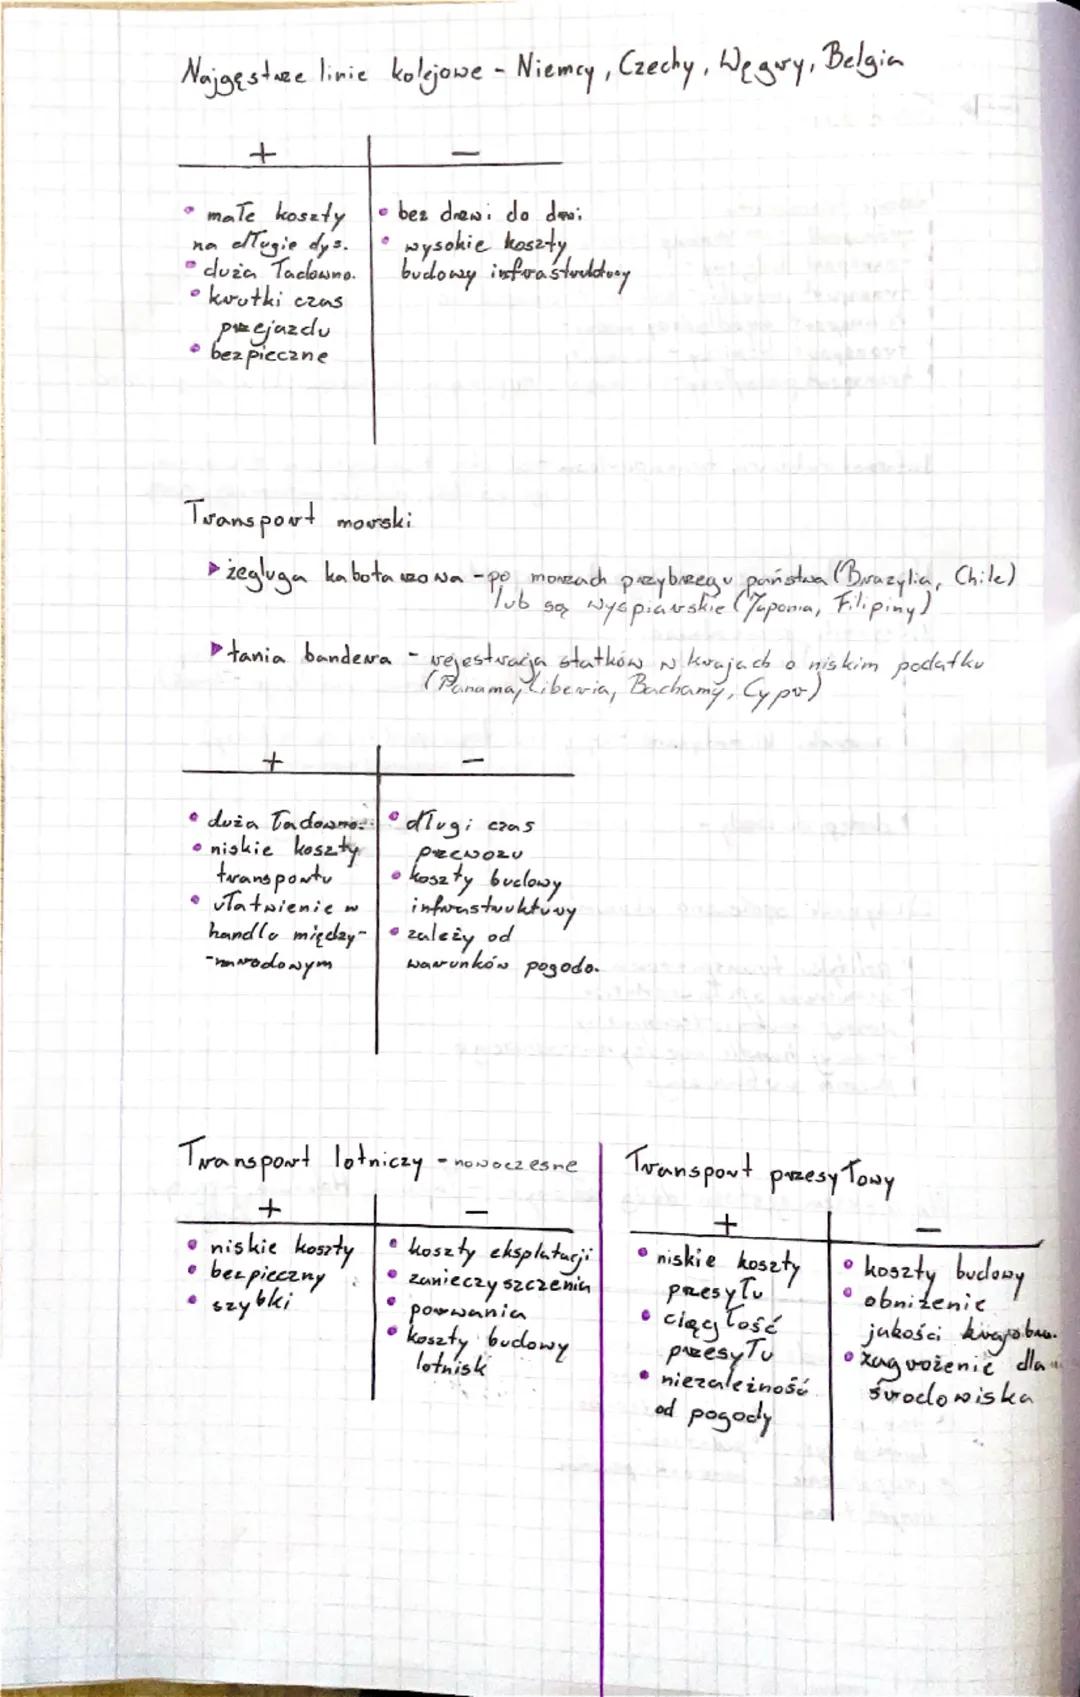 Najgęstsze linie kolejowe - Niemcy, Czechy, Węgry, Belgia
+ -
• małe koszty
na długie dys.
• duża ładowno.
• krutki czas
przejazdu
• bezpieczne
• bez drzwi do drzwi
• wysokie koszty
budowy infrastruktury
Transport morski
▶ żegluga kabotarzowa - po morzach przybrzegu państwa (Brazylia, Chile)
lub są wyspiarskie (Japonia, Filipiny)
▶ tania bandera - rejestracja statków w krajach o niskim podatku
(Panama, Liberia, Bachamy, Cypr)
+ -
• duża ładowno.
• niskie koszty
transportu
• ułatwienie w
handlu między-
-narodowym
• długi czas
przewozu
• koszty budowy
infrastruktury
• zależy od
warunków pogodo.
Transport lotniczy - nowoczesne
+ -
• niskie koszty
• bezpieczny
• szybki
• koszty eksplatacji
• zanieczyszczenia
• porwania
• koszty budowy
lotnisk
Transport przesyłowy
+ -
• niskie koszty
przesyłu
• ciągłość
przesyłu
• niezależność
od pogody
• koszty budowy
• obniżenie
jakości krajobra.
• zagrożenie dla
środowiska